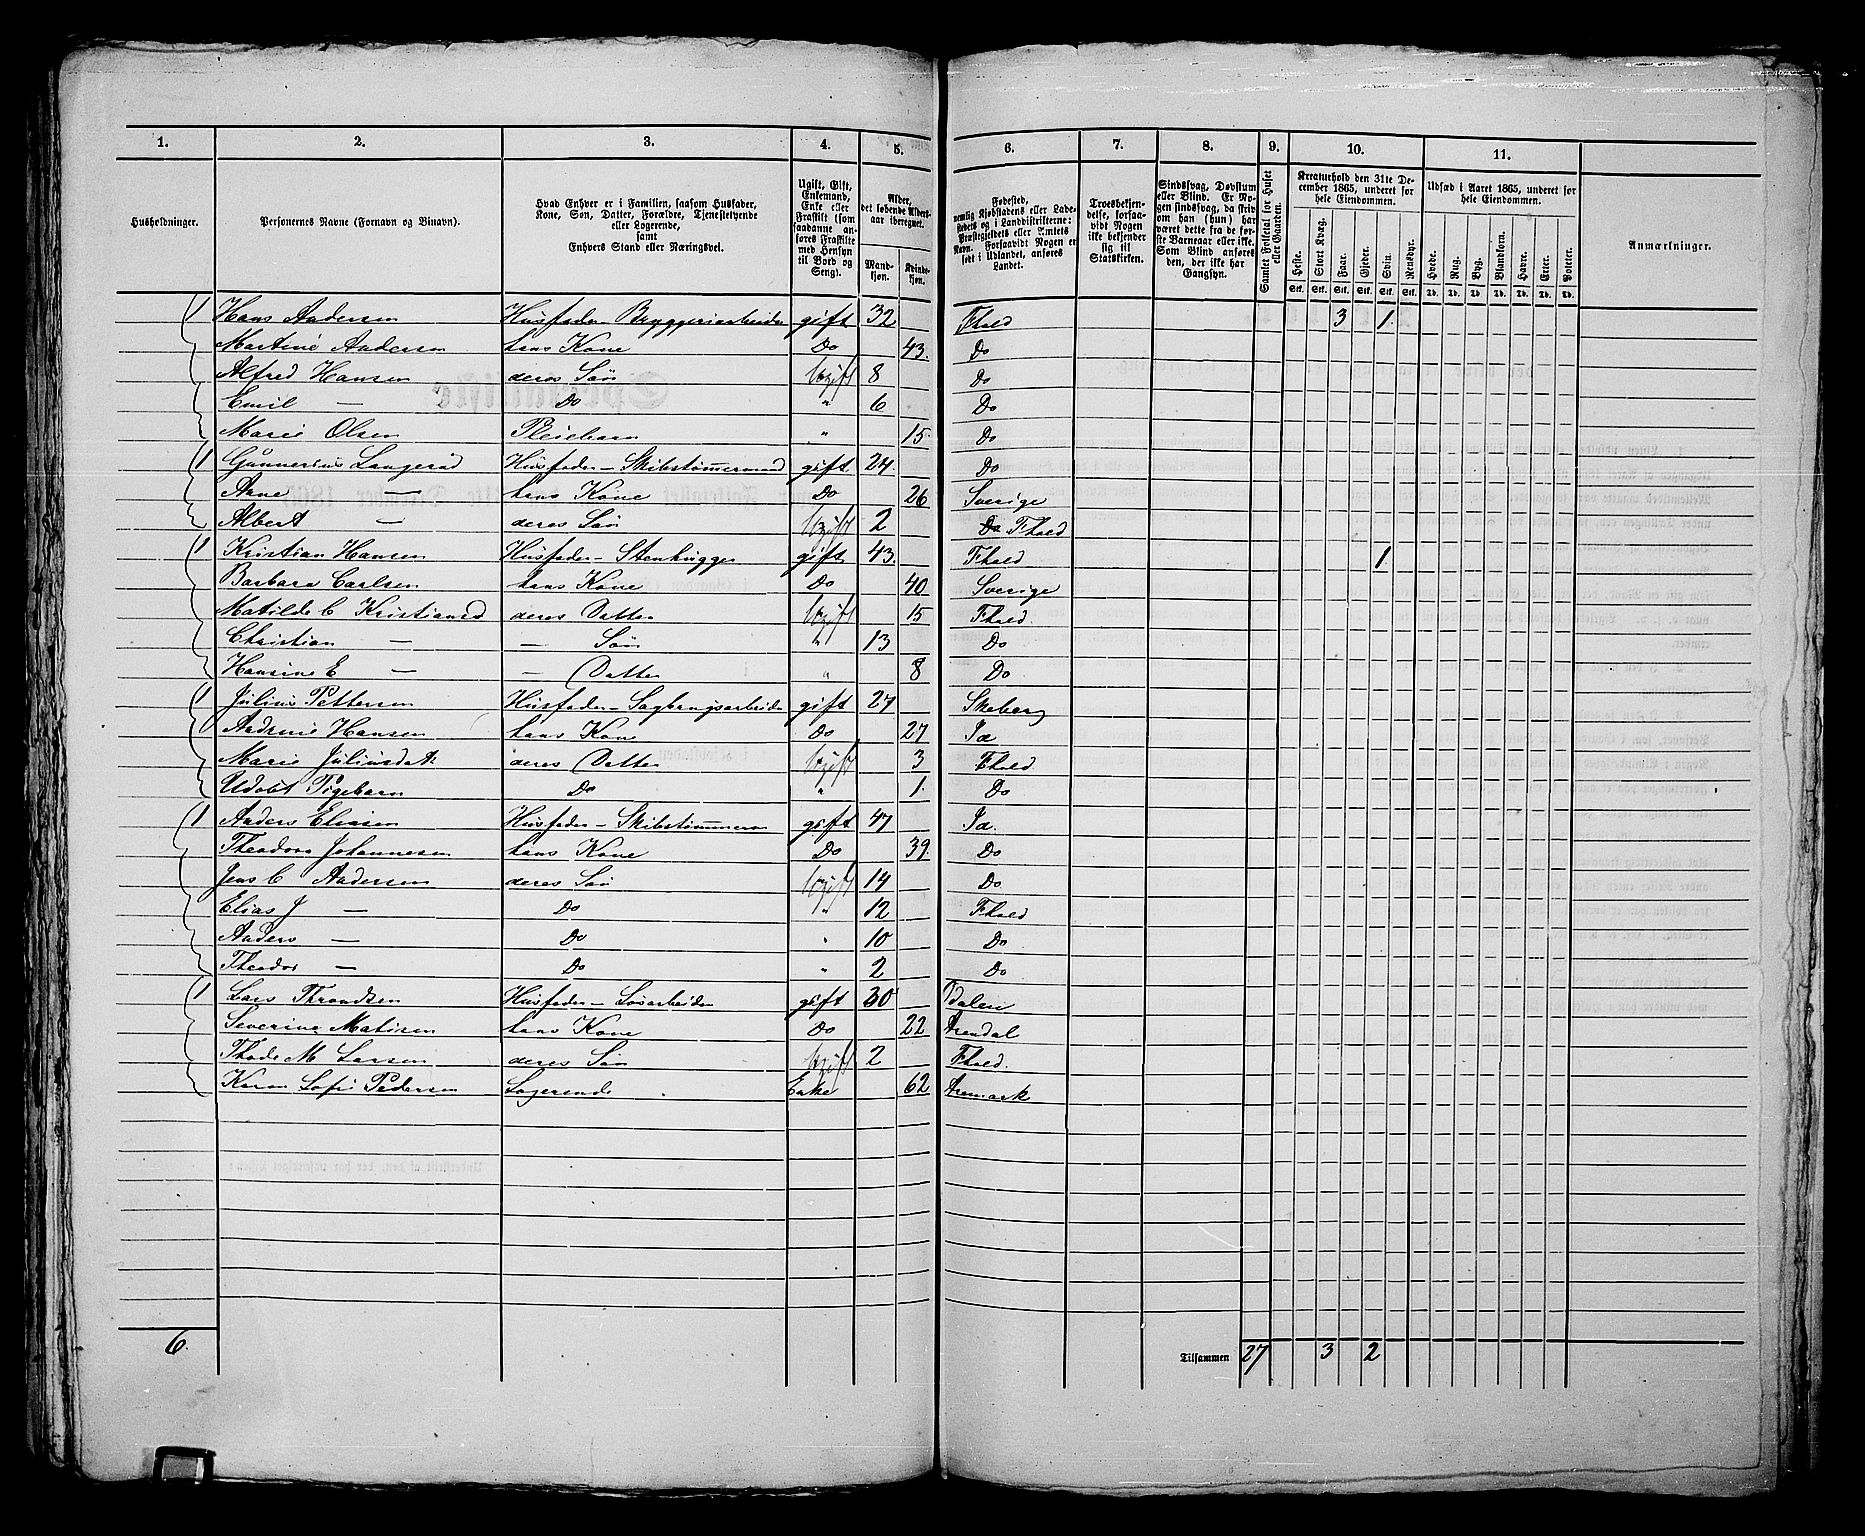 1. 2. 3. 4. 5. 6. 7. 8. 9. 10. 11.
Husholdninger.
Personernes Navne (Fornavn og Binavn).
Hvad Enhver er i Familien, saasom Husfader,
Kone, Søn, Datter, Forældre, Tjenestetyende
eller Logerende,
samt
Enhvers Stand eller Næringsvei.
Ugift, Gift,
Enkemand,
Enke eller
Fraskilt (som
saadanne an-
føres Fraskilte
med Hensyn
til Bord og
Seng).
Alder,
det løbende Alders-
aar iberegnet.
Mand-
kjøn.
Kvinde-
kjøn.
Fødested,
nemlig Kjøbstadens eller Lade-
stedets og i Landdistrikterne:
Præstegjeldets eller Amtets
Navn. Forsaavidt Nogen er
født i Udlandet, anføres
Landet.
Troesbekjen-
delse, forsaa-
vidt Nogen
ikke bekjender
sig til
Statskirken.
Sindssvag, Døvstum
eller Blind. Er No-
gen sindssvag, da skriv
om han (hun) har
været dette fra de før-
ste Barneaar eller ikke.
Som Blind anføres
den, der ikke har
Gangsyn.
Samlet Folketal for Huset
eller Gaarden.
Kreaturhold den 31te De-
cember 1865, underet for
hele Eiendommen.
Heste. Stort Kvæg. Faar. Gjeder. Svin. Rensdyr.
Stk. Stk. Stk. Stk. Stk. Stk.
Udsæd i Aaret 1865, underet for
hele Eiendommen.
Hvede. Rug. Byg. Blandkorn. Havre. Erter. Poteter.
Td. Td. Td. Td. Td. Td. Td.
Anmærkninger.
1 Hans Andersen Husfader Bryggeriarbeider gift 32 Fhald 3 1
Martine Andersen hans Kone Do 43. Do
Alfred Hansen deres Søn Ugift 8 Do
Emil — Do " 6 Do
Marie Olsen Pleiebarn " 15. Do
1 Gunnerius Langerød Husfader – Skibstømmermand gift 24. Do
Anne — hans Kone Do 26 Sverige
Albert — deres Søn Ugift 2 Do Fhald
1 Kristian Hansen Husfader – Stenhugger gift 43. Fhald 1
Barbara Carlsen hans Kone Do 40 Sverige
Matilde C Kristiansd deres Datter Ugift 15 Fhald
Christian — — Søn " 13 Do
Hansine E — — Datter " 8 Do
1 Julius Pettersen Husfader – Sagbrugsarbeider gift 27 Skeberg
Andrine Hansen hans Kone Do 27 Id
Marie Juliusdat. deres Datter Ugift 3 Fhald
Udøbt Pigebarn Do " 1. Do
1 Anders Eliasen Husfader – Skibstømmerm gift 47 Id.
Theodora Johannesen hans Kone Do 39. Do
Jens C Andersen deres Søn Ugift 14 Do
Elias J — Do " 12 Fhald
Anders — Do " 10 Do
Theodor — Do " 2 Do
1 Lars Throndsen Husfader – Løsarbeider gift 30 Odalen
Severine Matisen hans Kone Do 22 Arendal
Thode M Larsen deres Søn Ugift 2 Fhald.
Karen Sofie Pedersen Logerende Enke 62 Aremark
6. Tilsammen 27 3 2